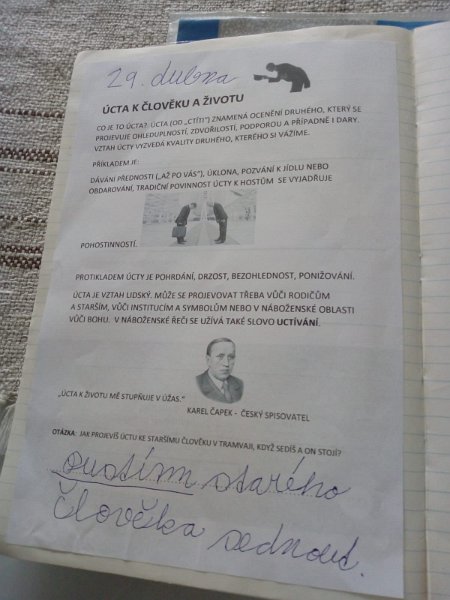 29. dubna
ÚCTA K ČLOVĚKU A ŽIVOTU
CO JE TO ÚCTA?: ÚCTA (OD „CTÍTI“) ZNAMENÁ OCENĚNÍ DRUHÉHO, KTERÝ SE
PROJEVUJE OHLEDUPLNOSTÍ, ZDVOŘILOSTÍ, PODPOROU A PŘÍPADNĚ I DARY.
VZTAH ÚCTY VYZVEDÁ KVALITY DRUHÉHO, KTERÉHO SI VÁŽÍME.
PŘÍKLADEM JE:
DÁVÁNÍ PŘEDNOSTI („AŽ PO VÁS“), ÚKLONA, POZVÁNÍ K JÍDLU NEBO
OBDAROVÁNÍ, TRADIČNÍ POVINNOST ÚCTY K HOSTŮM SE VYJADŘUJE
POHOSTINNOSTÍ.
PROTIKLADEM ÚCTY JE POHRDÁNÍ, DRZOST, BEZOHLEDNOST, PONIŽOVÁNÍ.
ÚCTA JE VZTAH LIDSKÝ. MŮŽE SE PROJEVOVAT TŘEBA VŮČI RODIČŮM
A STARŠÍM, VŮČI INSTITUCÍM A SYMBOLŮM NEBO V NÁBOŽENSKÉ OBLASTI
VŮČI BOHU. V NÁBOŽENSKÉ ŘEČI SE UŽÍVÁ TAKÉ SLOVO UCTÍVÁNÍ.
„ÚCTA K ŽIVOTU MĚ STUPŇUJE V ÚŽAS.“
KAREL ČAPEK - ČESKÝ SPISOVATEL
OTÁZKA: JAK PROJEVÍŠ ÚCTU KE STARŠÍMU ČLOVĚKU V TRAMVAJI, KDYŽ SEDÍŠ A ON STOJÍ?
pustím starého
člověka sednout.